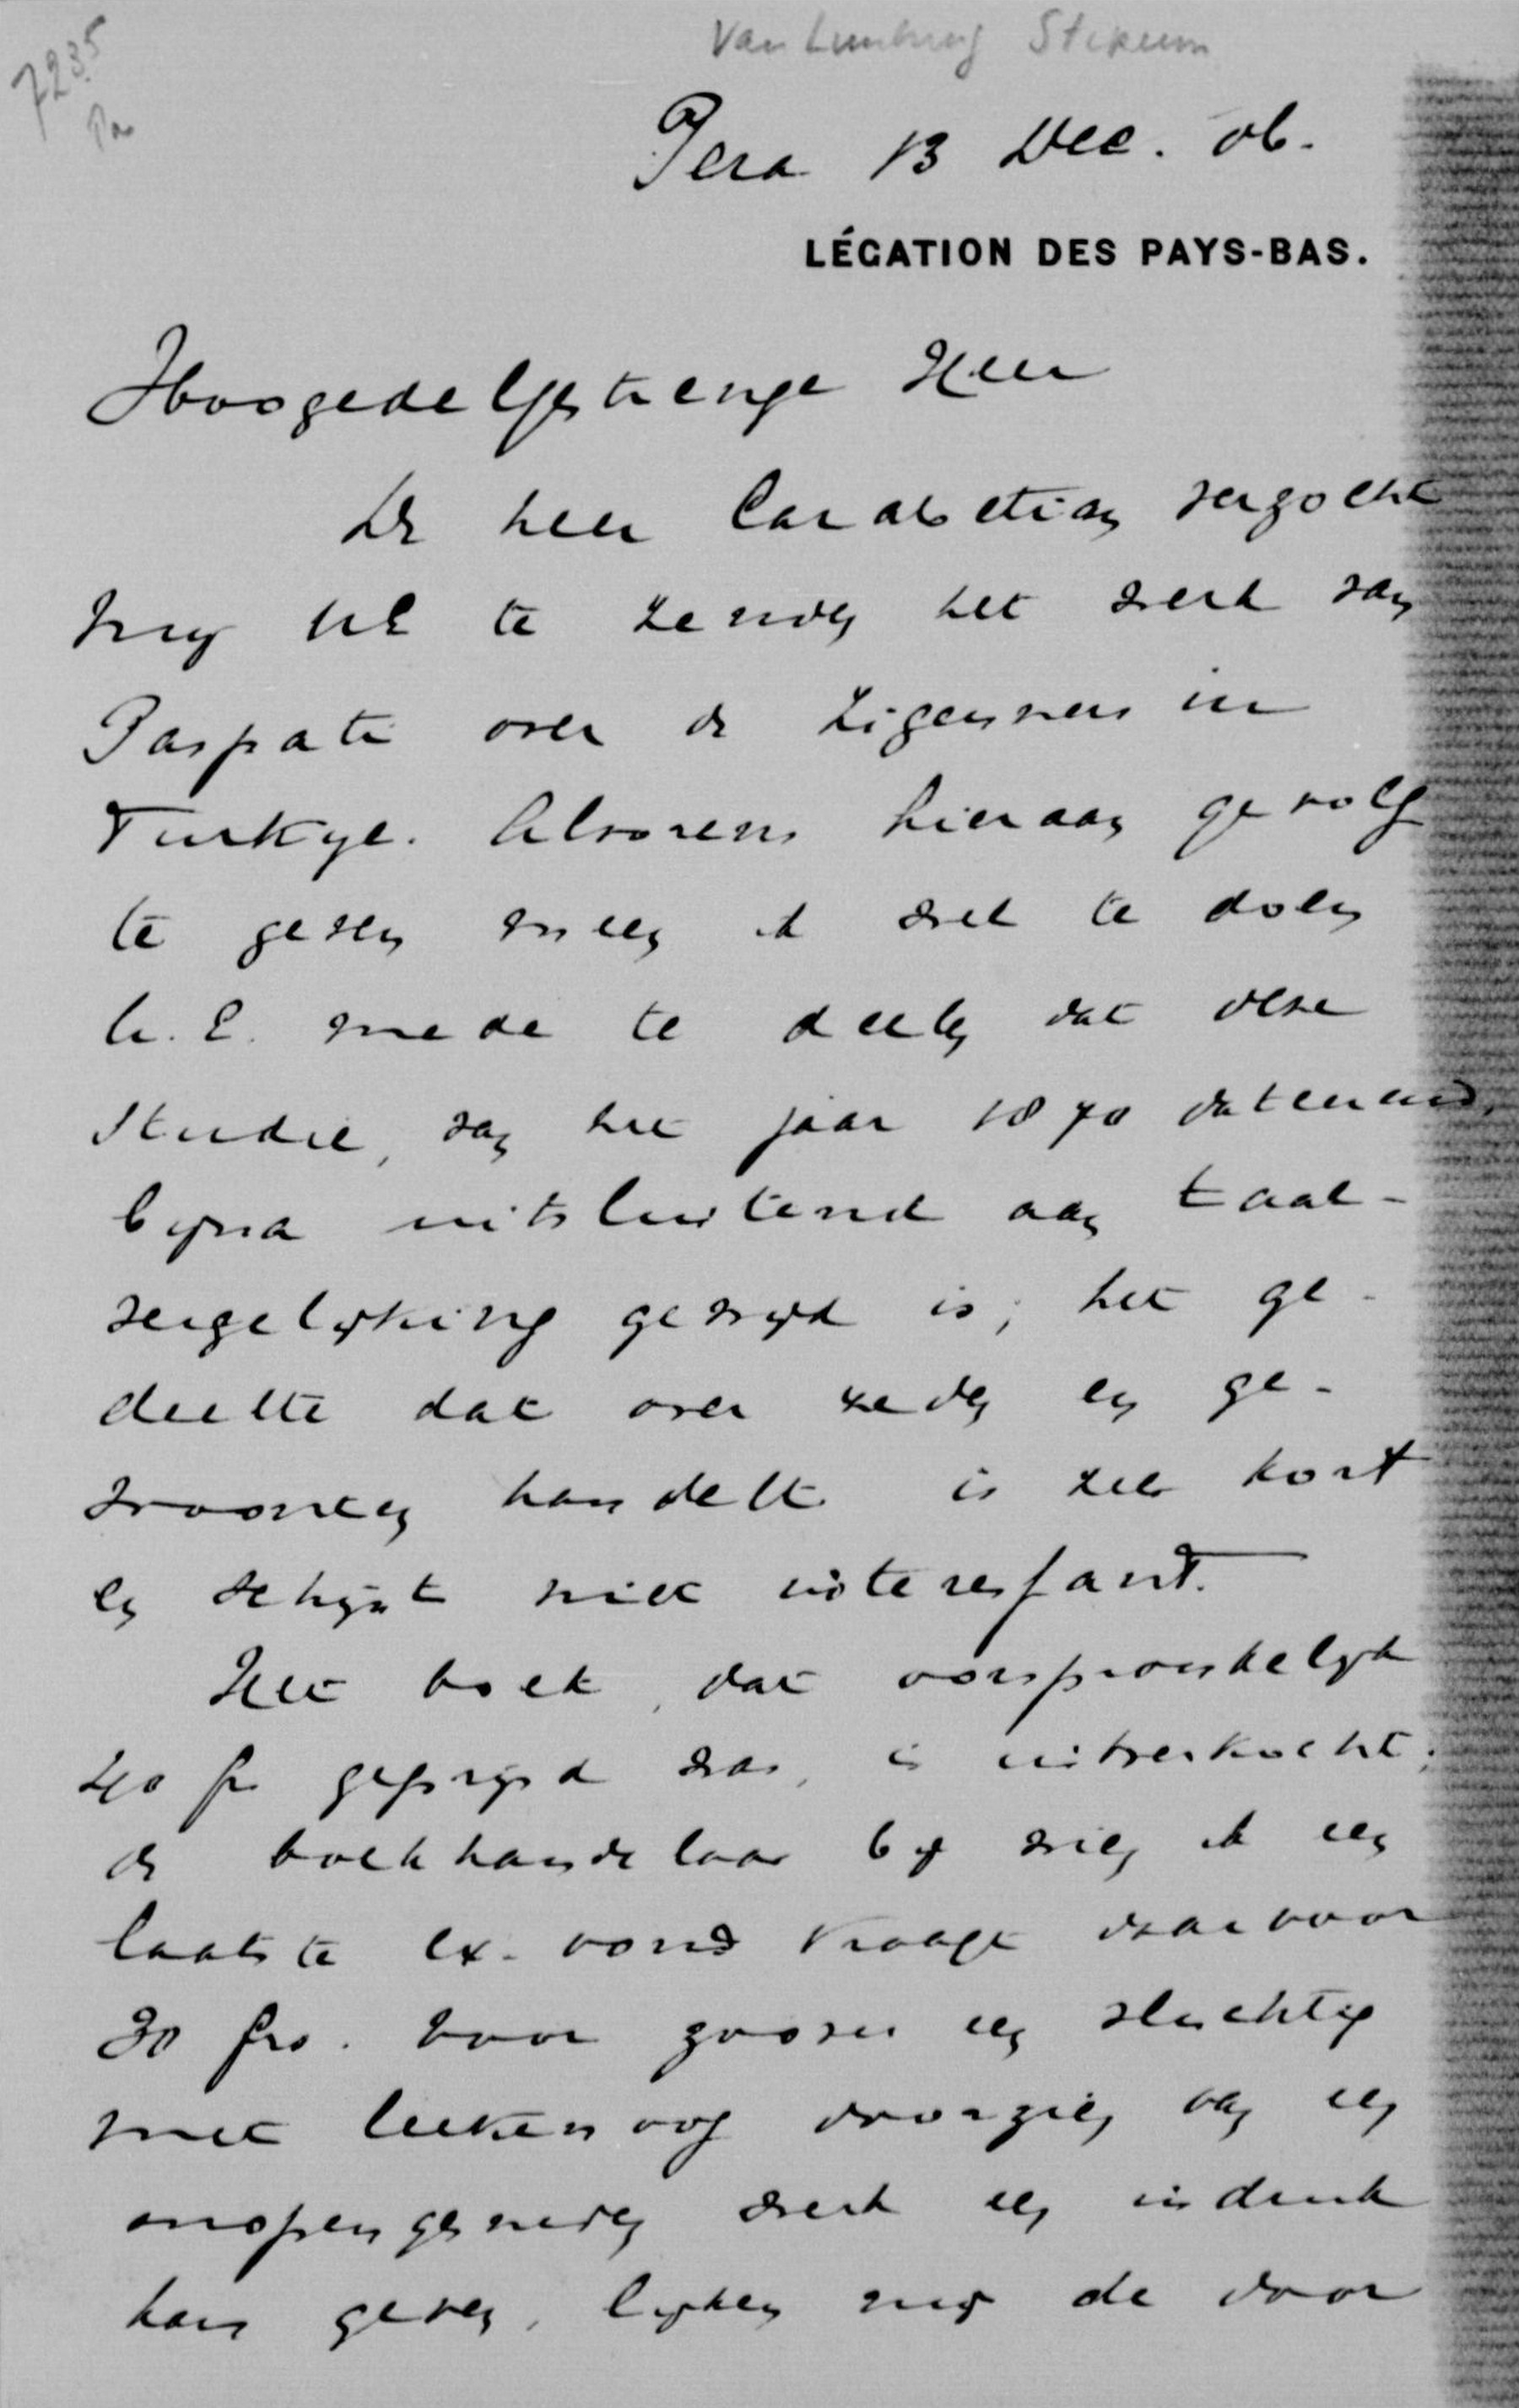 7235
Pa
Van Limburg Stirum
Pera 13 Dec. 06.
LÉGATION DES PAYS-BAS.
Hoogedelgestrenge Heer
De heer Carabetian verzocht
my UE te zenden het werk van
Paspati over de Zigeuners in
Turkye. Alvorens hieraan gevolg
te geven meen ik wel te doen
U.E. mede te deelen dat deze
studie, van het jaar 1870 dateerend,
byna uitsluitend aan taal-
vergelyking gewyd is; het ge-
deelte dat over zeden en ge-
woonten handelt is zeer kort
en schynt niet interessant.
Het boek, dat oorspronkelyk
40 fr geprysd was, is uitverkocht;
de boekhandelaar by wien ik een
laatste ex. vond vraagt daarvoor
30 frs. Voor zoover een vluchtig
met leekenoog doorzien van een
onopengesneden werk een indruk
kan geven, lyken my de door